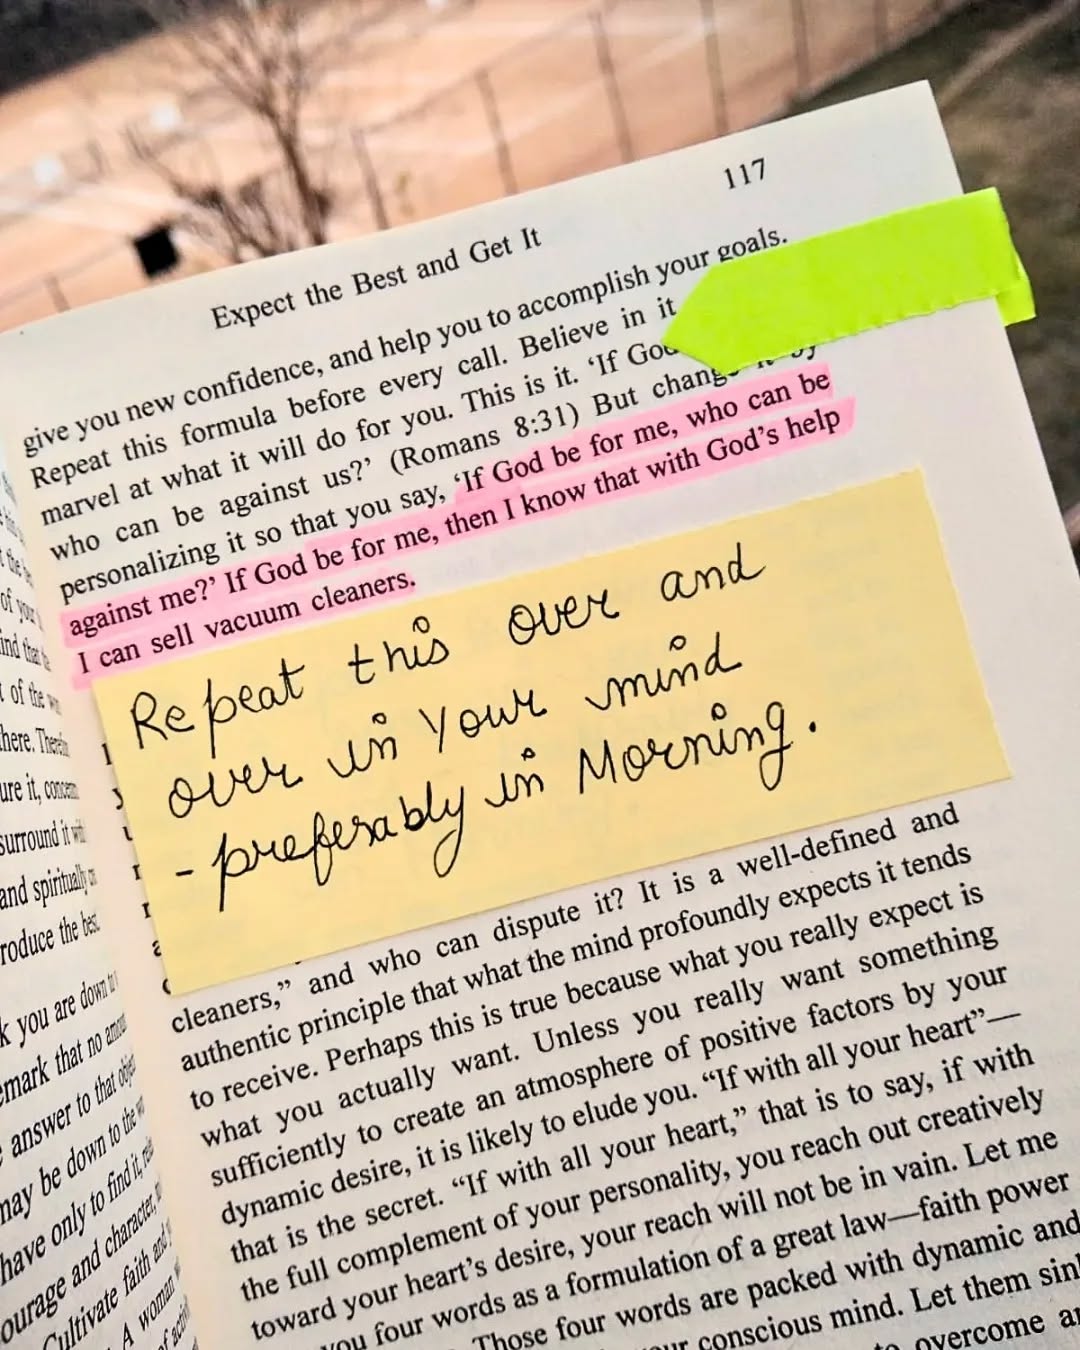 117
Expect the Best and Get It
give you new confidence, and help you to accomplish your goals.
Repeat this formula before every call. Believe in it
marvel at what it will do for you. This is it. ‘If God
who can be against us?’ (Romans 8:31) But change it by
personalizing it so that you say, ‘If God be for me, who can be
against me?’ If God be for me, then I know that with God’s help
I can sell vacuum cleaners.
Repeat this over and
over in your mind
- preferably in Morning.
cleaners,” and who can dispute it? It is a well-defined and
authentic principle that what the mind profoundly expects it tends
to receive. Perhaps this is true because what you really expect is
what you actually want. Unless you really want something
sufficiently to create an atmosphere of positive factors by your
dynamic desire, it is likely to elude you. “If with all your heart”—
that is the secret. “If with all your heart,” that is to say, if with
the full complement of your personality, you reach out creatively
toward your heart’s desire, your reach will not be in vain. Let me
you four words as a formulation of a great law—faith power
Those four words are packed with dynamic and
conscious mind. Let them
overcome
of your
ind that
t of the
here.
ure it,
surround it
and spiritually
roduce the best.
k you are down
emark that no
answer to that
may be down to the
have only to find it,
ourage and character,
Cultivate faith and
A woman